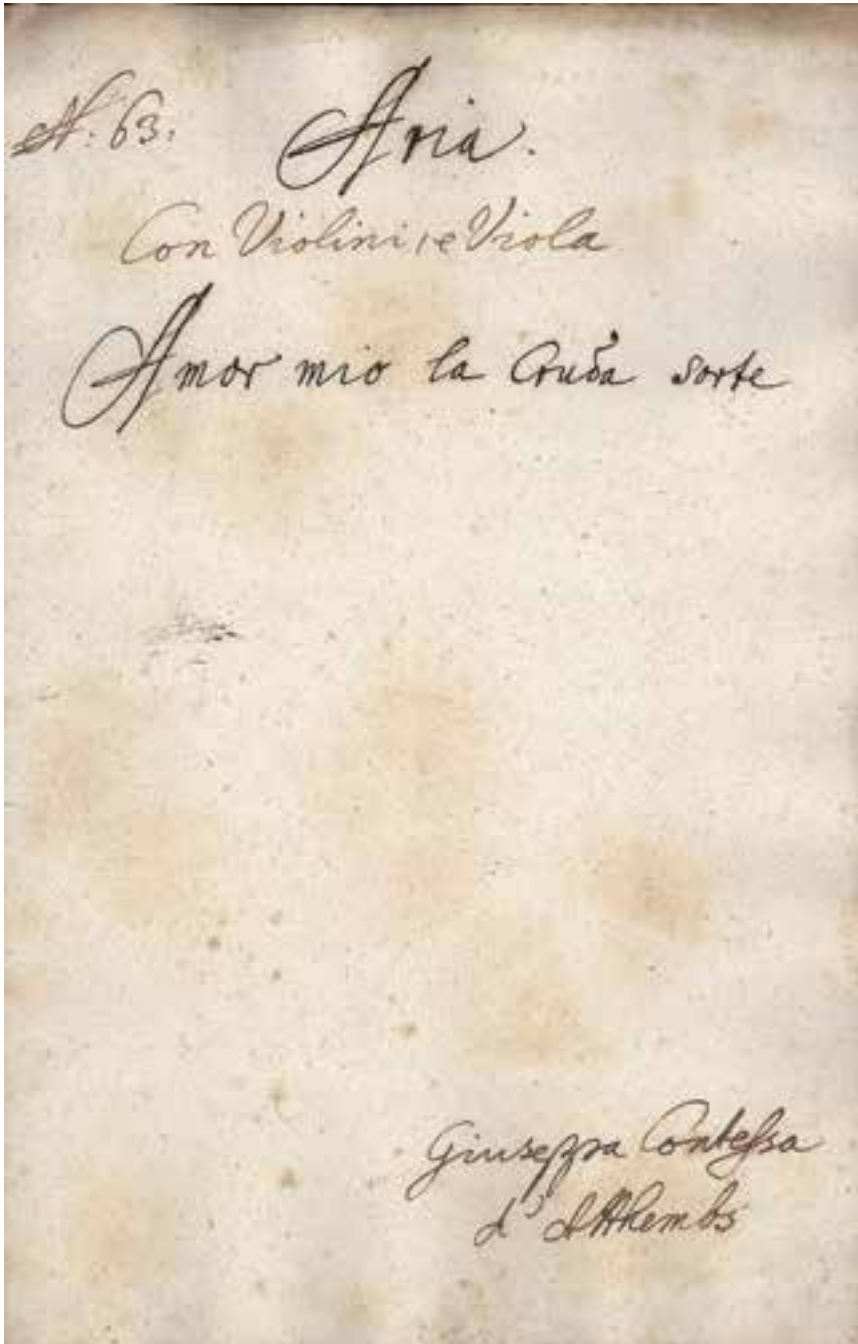 N: 63.
Aria.
Con Violini, e Viola
Amor mio la Cruda sorte
Giuseppa Contessa
d' Atthembs